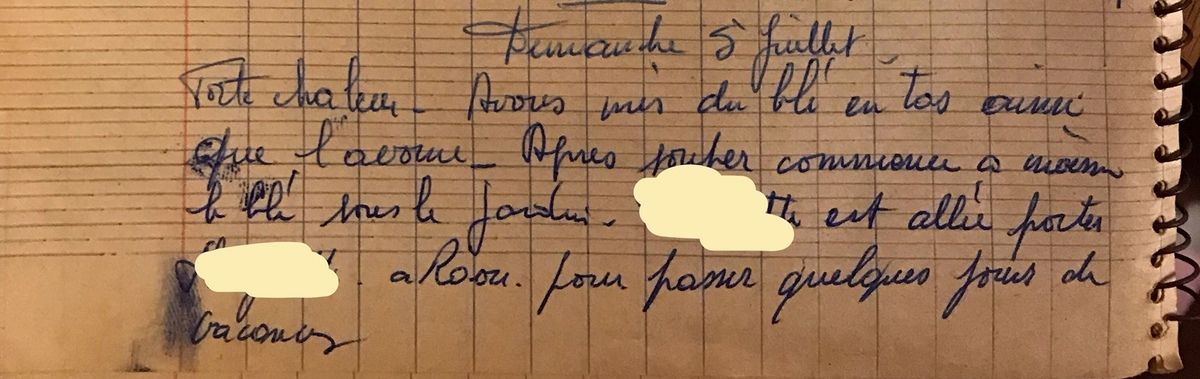 Dimanche 5 Juillet
Forte chaleur - Avons mis du blé en tas ainsi
que l'avoine - Apres souper commence a moissonner
le blé sous le jardin. est allée porter
a Raon. pour passer quelques jours de
vacances